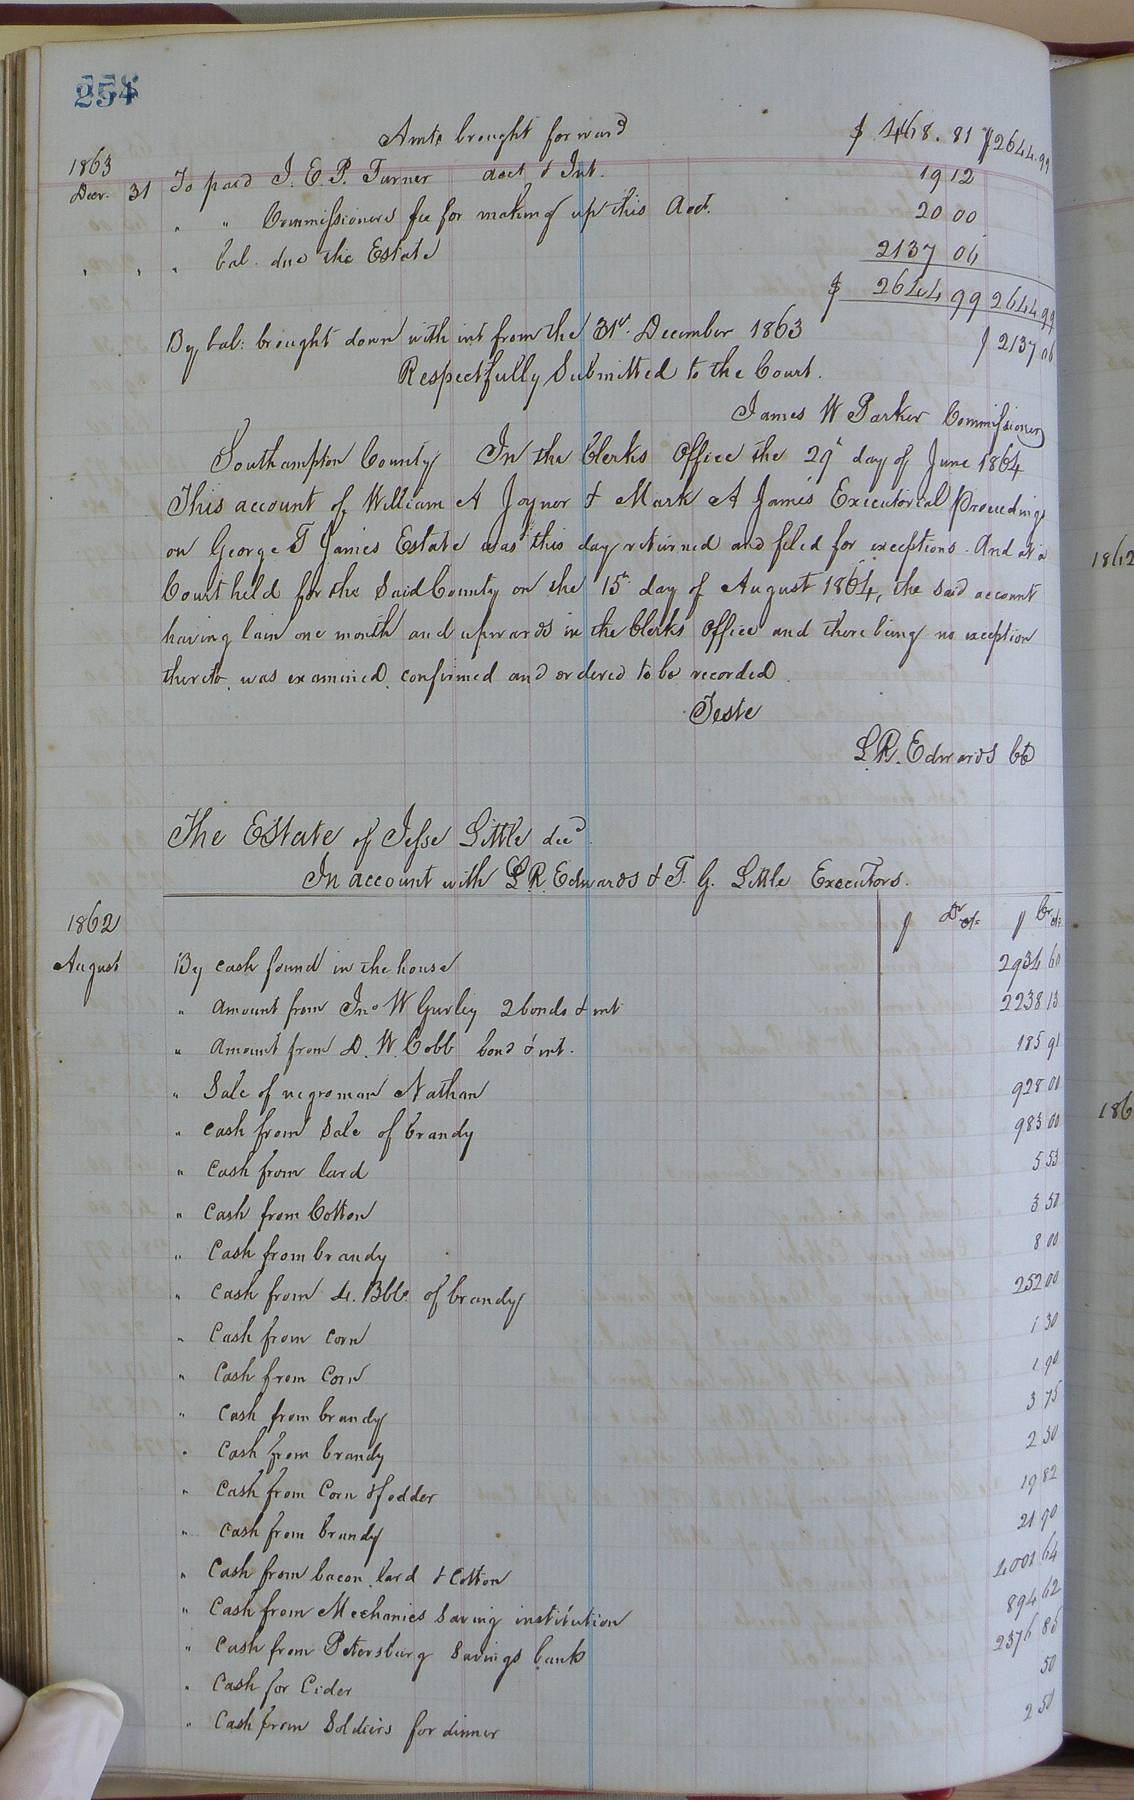 254
Amts brought forward $ 468.81 $2644.99
1863
Decr. 31 To paid J. E. P. Turner acct & Int. 19 12
" " Commissioners fee for making up this Acct. 20 00
" " " bal. due the Estate 2137 06
$ 2644 99 2644 99
By bal: brought down with int from the 31st December 1863 $ 2137 06
Respectfully Submitted to the Court.
James W Parker Commissioner
Southampton County In the Clerks Office the 29th day of June 1864
This account of William A Joyner & Mark A James Executorial Proceedings
on George T James Estate was this day returned and filed for exceptions. And at a
Court held for the Said County on the 15th day of August 1864, the said account
having lain one month and upwards in the Clerks Office and there being no exception
thereto, was examined, confirmed and ordered to be recorded.
Teste
L. R. Edwards Ck
The Estate of Jesse Little decd.
In account with L. R. Edwards & T. G. Little Executors.
1862 $ Dr cts $ Cr cts
August By cash found in the house 2934 60
" Amount from Jno W Gurley 2 bonds & int 2238 13
" Amount from D. W. Cobb bond & int. 185 91
" Sale of negroman Nathan 928 00
" Cash from Sale of brandy 983 00
" Cash from lard 5 53
" Cash from Cotton 3 50
" Cash from brandy 8 00
" Cash from 4. Bbls. of brandy 252 00
" Cash from corn 1 30
" Cash from Corn 1 90
" Cash from brandy 3 75
" Cash from brandy 2 50
" Cash from Corn & fodder 19 82
" Cash from brandy 21 90
" Cash from bacon, lard & Cotton 64
" Cash from Mechanics Saving institution 894 62
" Cash from Petersburg Savings bank 2376 85
" Cash for Cider 50
" Cash from Soldiers for dinner 2 50
1862
186